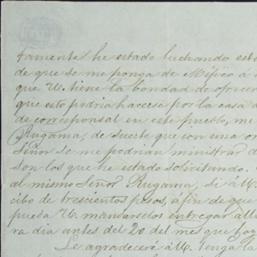 tamente he estado luchando est
de que se me ponga de Méjico á
que V. tiene la bondad de ofrecer
que esto podria hacerse por la casa d
de corresponsal en este pueblo, me
Rugama, de suerte que con una or
Señor se me podrian ministrar d
son los que he estado solicitando.
al mismo Señor Rugama, si á V.
cibo de trescientos pesos, á fin de que
pueda V. mandarselos entregar all
ra dia antes del 20 del mes que hoy
Le agradeceré á V. tenga la